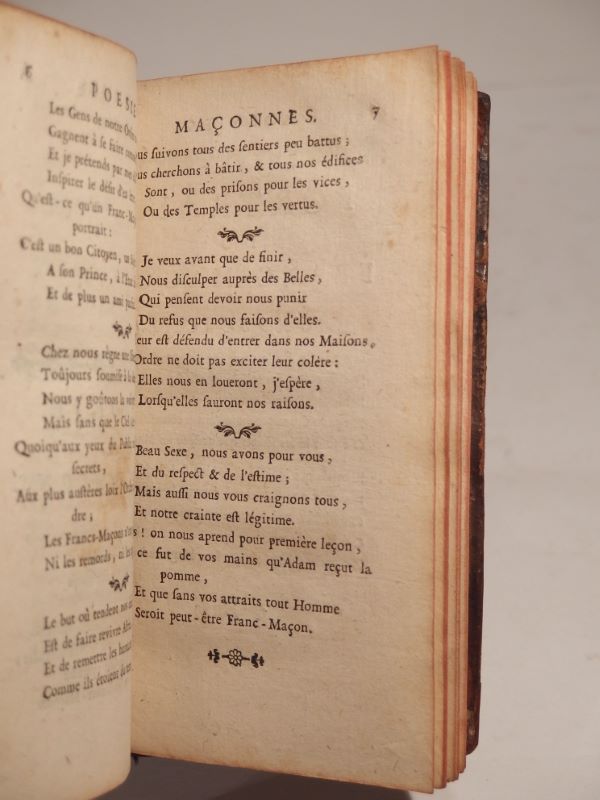 6
POESIE
Les Gens de notre
Gagnent à se faire
Et je prétends par
Inspirer le désir d'en
Qu'est-ce qu'un Franc-
portrait:
C'est un bon Citoyen, un
A son Prince, à
Et de plus un ami
Chez nous règne une
Toûjours soumise à la
Nous y goûtons la
Mais sans que le Ciel
Quoiqu'aux yeux du
secrets,
Aux plus austères loix
dre;
Les Francs-Maçons
Ni les remords, ni
Le but où tendent nos
Est de faire revivre
Et de remettre les
Comme ils étoient
MAÇONNES. 7
us suivons tous des sentiers peu battus;
us cherchons à bâtir, & tous nos édifices
Sont, ou des prisons pour les vices,
Ou des Temples pour les vertus.
Je veux avant que de finir,
Nous disculper auprès des Belles,
Qui pensent devoir nous punir
Du refus que nous faisons d'elles.
eur est défendu d'entrer dans nos Maisons,
Ordre ne doit pas exciter leur colère:
Elles nous en loueront, j'espère,
Lorsqu'elles sauront nos raisons.
Beau Sexe, nous avons pour vous,
Et du respect & de l'estime;
Mais aussi nous vous craignons tous,
Et notre crainte est légitime.
s! on nous aprend pour première leçon,
ce fut de vos mains qu'Adam reçut la
pomme,
Et que sans vos attraits tout Homme
Seroit peut-être Franc-Maçon.